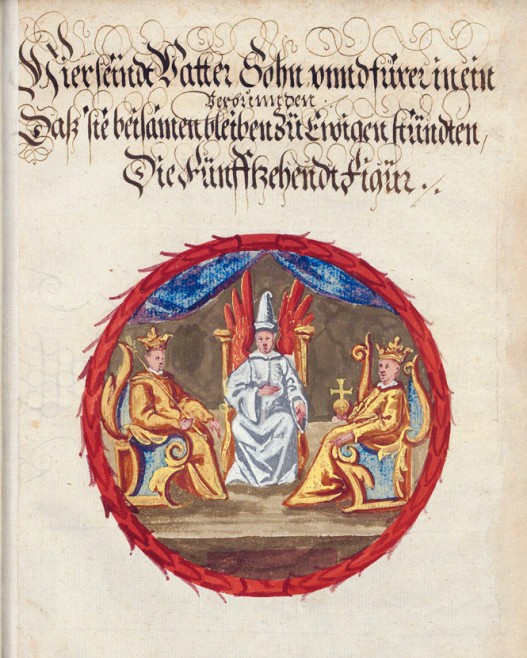 Hier seindt Vatter Sohn vnnd fürer in ein
verbunnden
Daß sie beisamen bleiben zü Ewigen stündten,
Die Fünfftzehendt Figür ./.